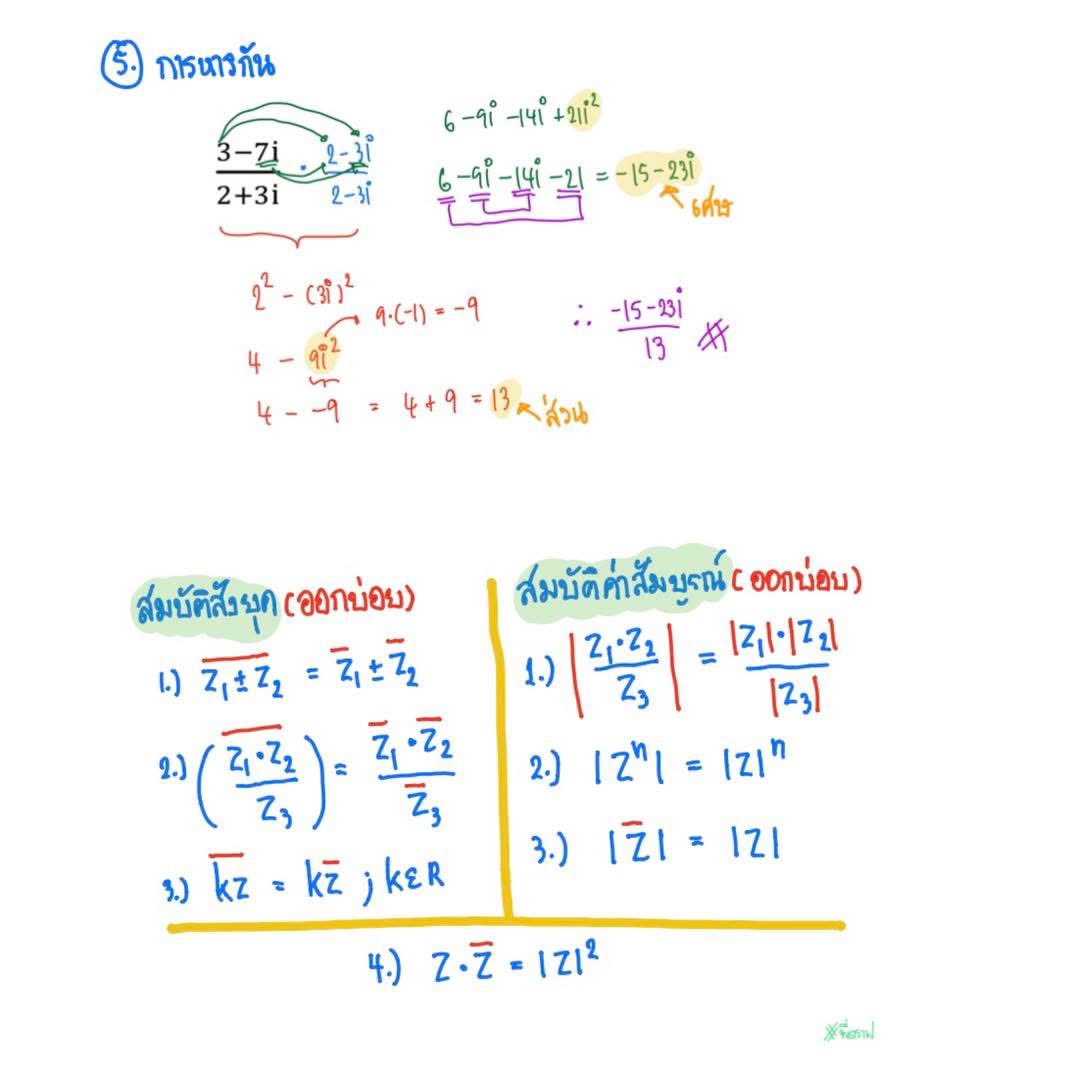 5. การหารกัน
3−7i / 2+3i · 2-3i / 2-3i
6 -9i -14i +21i²
6 -9i -14i -21 = -15 - 23i
เศษ
2² - (3i)²
9·(-1) = -9
4 - 9i²
4 - -9 = 4 + 9 = 13
ส่วน
∴ -15-23i / 13 #
สมบัติสังยุค (ออกบ่อย)
1.) \overline{Z₁ ± Z₂} = Z̄₁ ± Z̄₂
2.) (\overline{Z₁·Z₂} / Z₃) = Z̄₁·Z̄₂ / Z̄₃
3.) \overline{kz} = kz̄ ; kεR
สมบัติค่าสัมบูรณ์ (ออกบ่อย)
1.) |Z₁·Z₂ / Z₃| = |Z₁|·|Z₂| / |Z₃|
2.) |Zⁿ| = |Z|ⁿ
3.) |Z̄| = |Z|
4.) Z·Z̄ = |Z|²